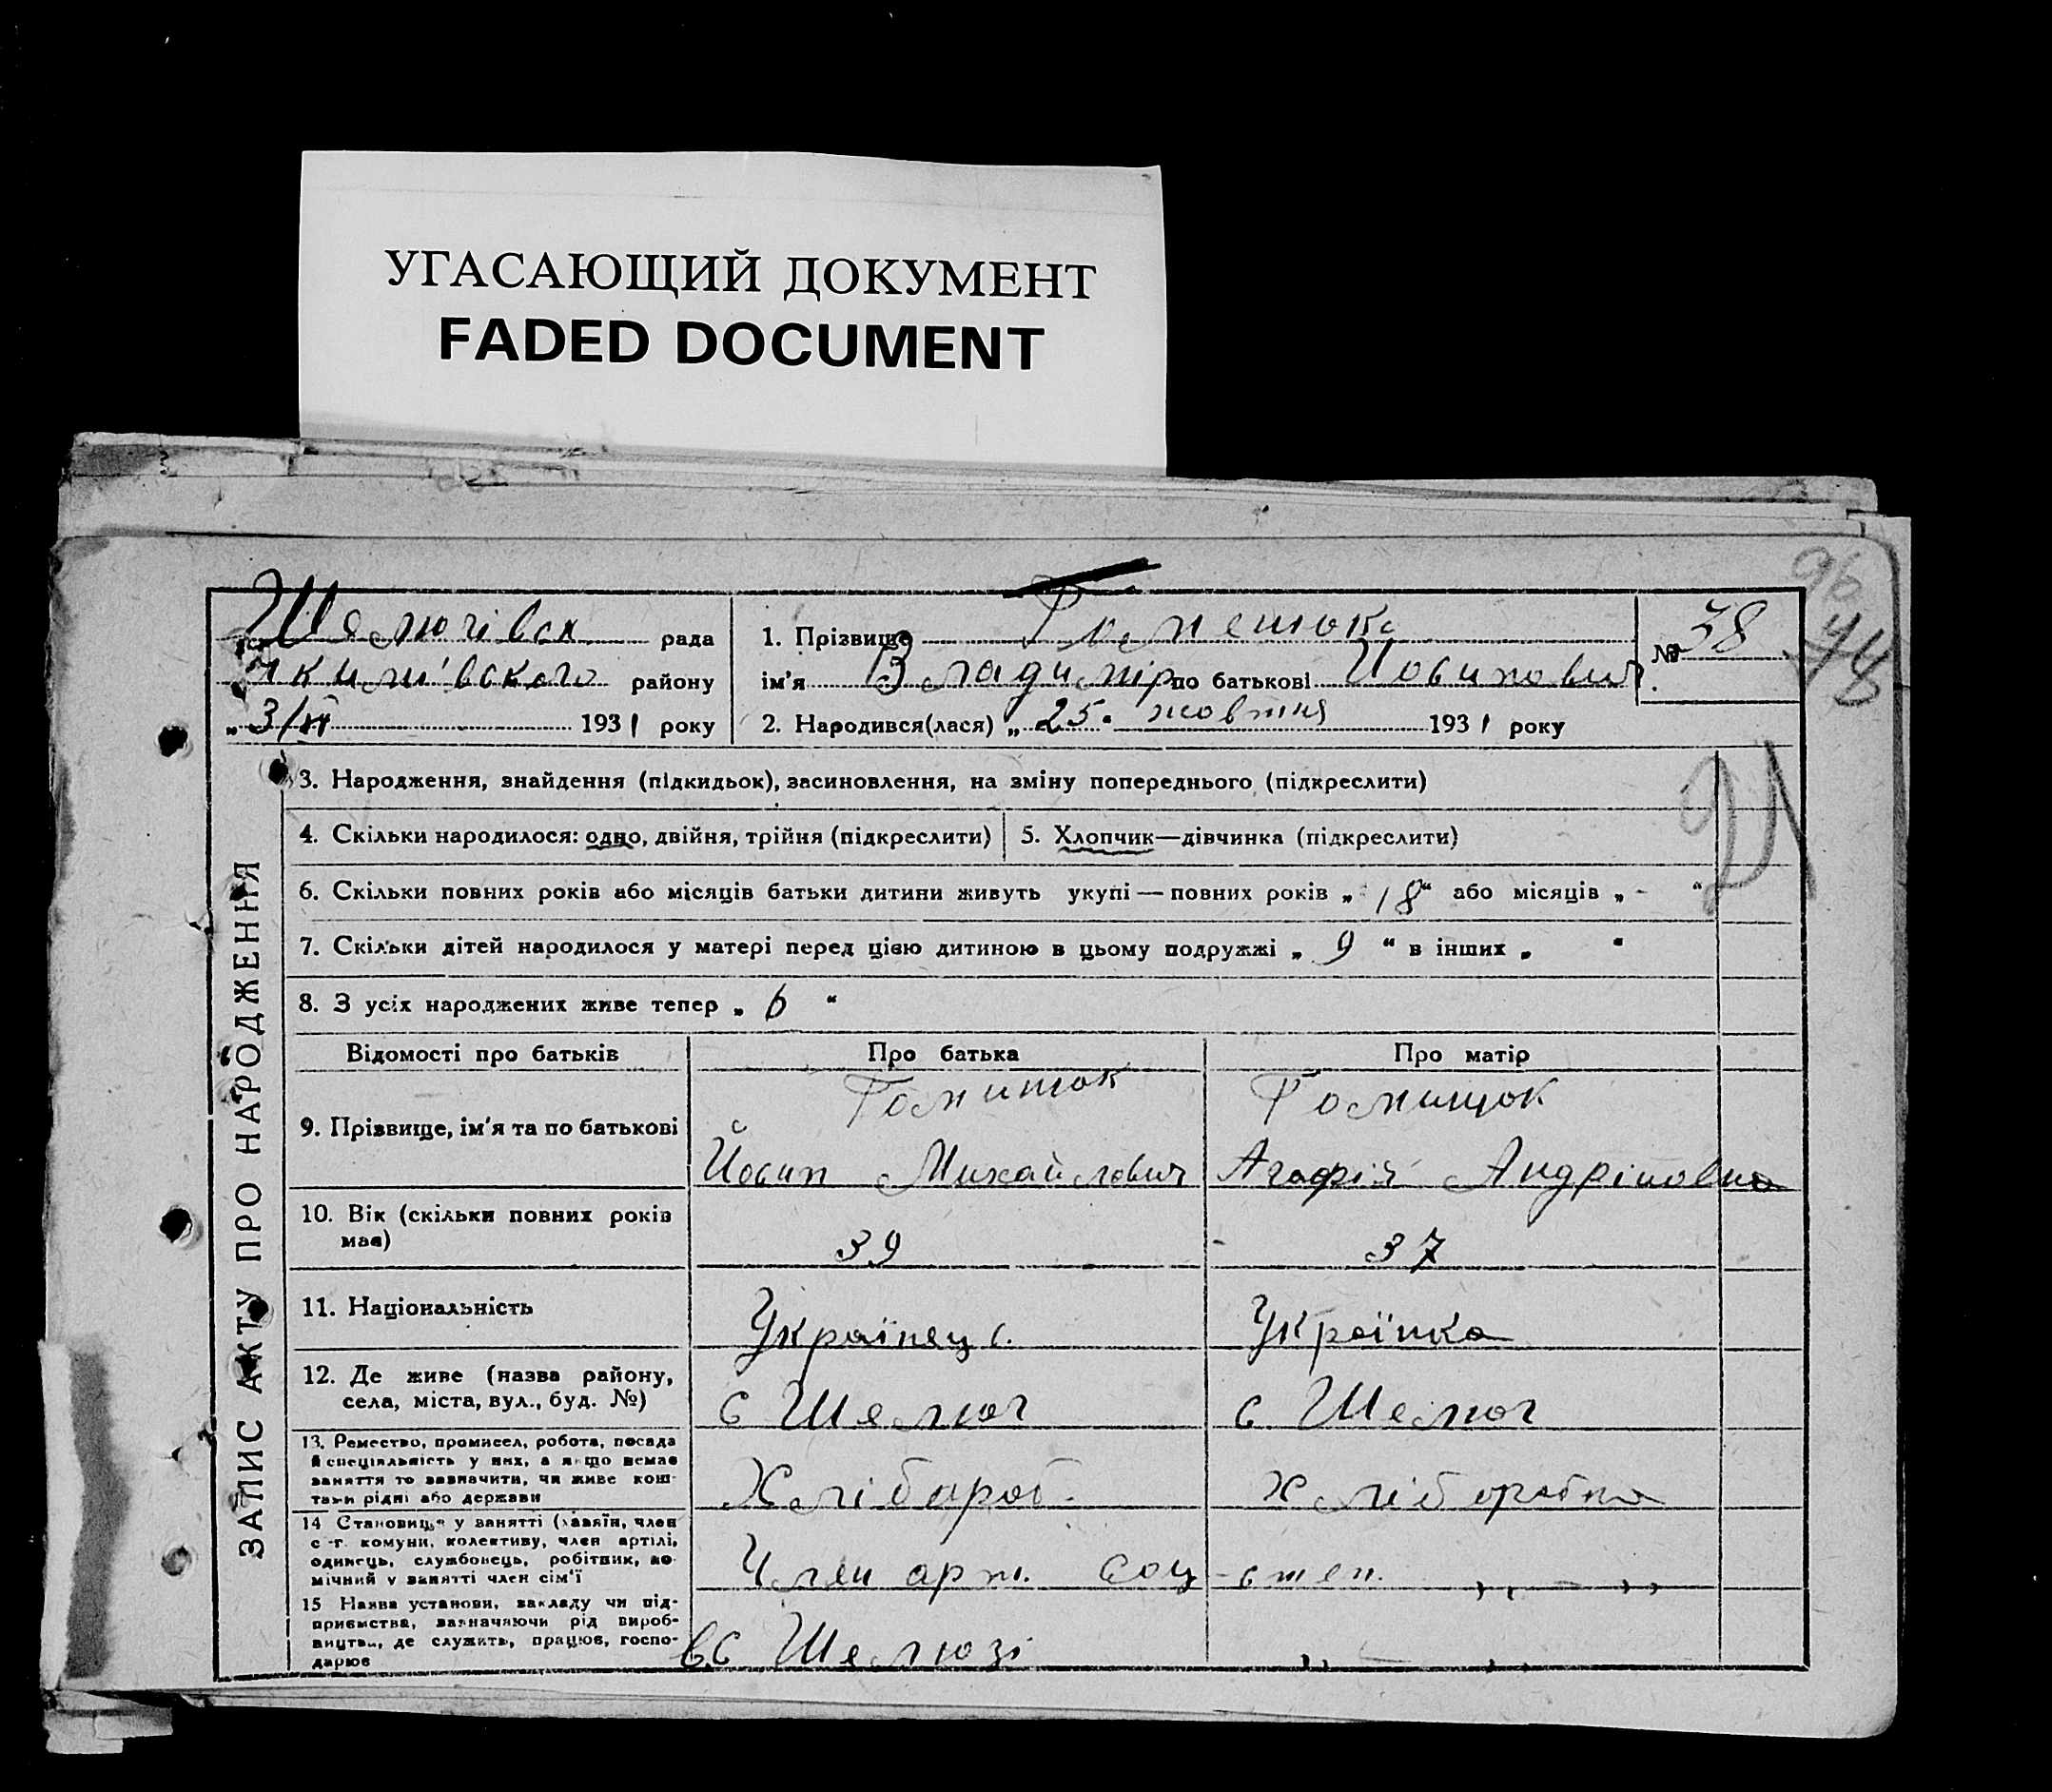 УГАСАЮЩИЙ ДОКУМЕНТ
FADED DOCUMENT
96
44
Шелюгівск рада
Якимівского району
„ 3/XI 1931 року
1. Прізвище
ім'я Владимір по батькові Йовипович
2. Народився(лася) „ 25 " жовтня 1931 року
№ 38
3. Народження, знайдення (підкидьок), засиновлення, на зміну попереднього (підкреслити)
4. Скільки народилося: одно, двійня, трійня (підкреслити)
5. Хлопчик—дівчинка (підкреслити)
6. Скільки повних років або місяців батьки дитини живуть укупі — повних років „ 18 “ або місяців „ - “
7. Скільки дітей народилося у матері перед цією дитиною в цьому подружжі „ 9 “ в інших „ “
8. З усіх народжених живе тепер „ 6 “
ЗАПИС АКТУ ПРО НАРОДЖЕННЯ
Відомості про батьків
Про батька
Про матір
9. Прізвище, ім'я та по батькові
Йовип Михайлович
Агафія Андріповна
10. Вік (скільки повних років має)
39
37
11. Національність
Українець
Українка
12. Де живе (назва району,
села, міста, вул., буд. №)
с Шелюг
с. Шелюг
13. Ремество, промисел, робота, посада
й спеціяльність у них, а якщо немає
заняття то зазначити, чи живе кош-
тами рідні або держави
Хлібароб.
Хліборобка
14 Становище у занятті (хазяїн, член
с.-г. комуни, колективу, член артілі,
одинець, службовець, робітник, по-
мічний у занятті член сім'ї
Член арт. Соц - степ. ,, — ,,
15 Назва установи, закладу чи під-
приємства, зазначаючи рід вироб-
ництва, де служить, працює, госпо-
дарює
в с Шелюзі
,, — ,,